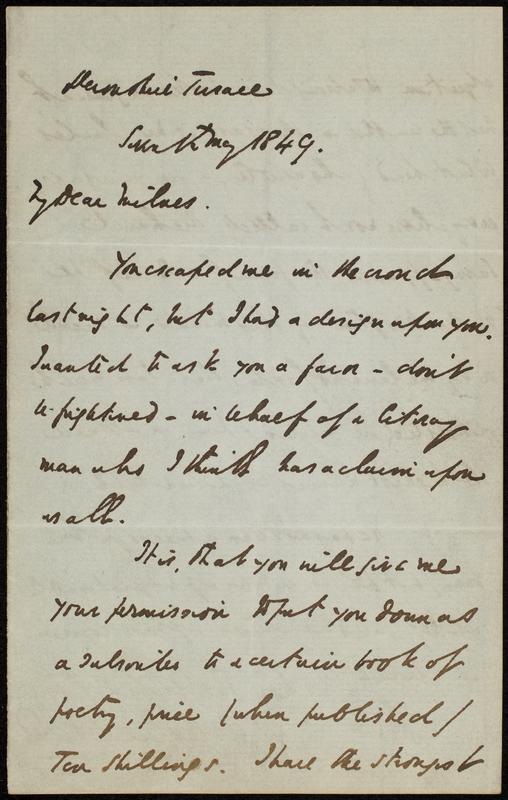 Devonshire Terrace
May 1849.
My Dear Milnes.
You escaped me in the crowd
last night, but I had a design upon you.
I wanted to ask you a favor - don't
be frightened - in behalf of a literary
man who I think has a claim upon
us all.
It is, that you will give me
your permission to put you down as
a subscriber to a certain book of
poetry, price (when published)
Ten shillings. I have the strongest